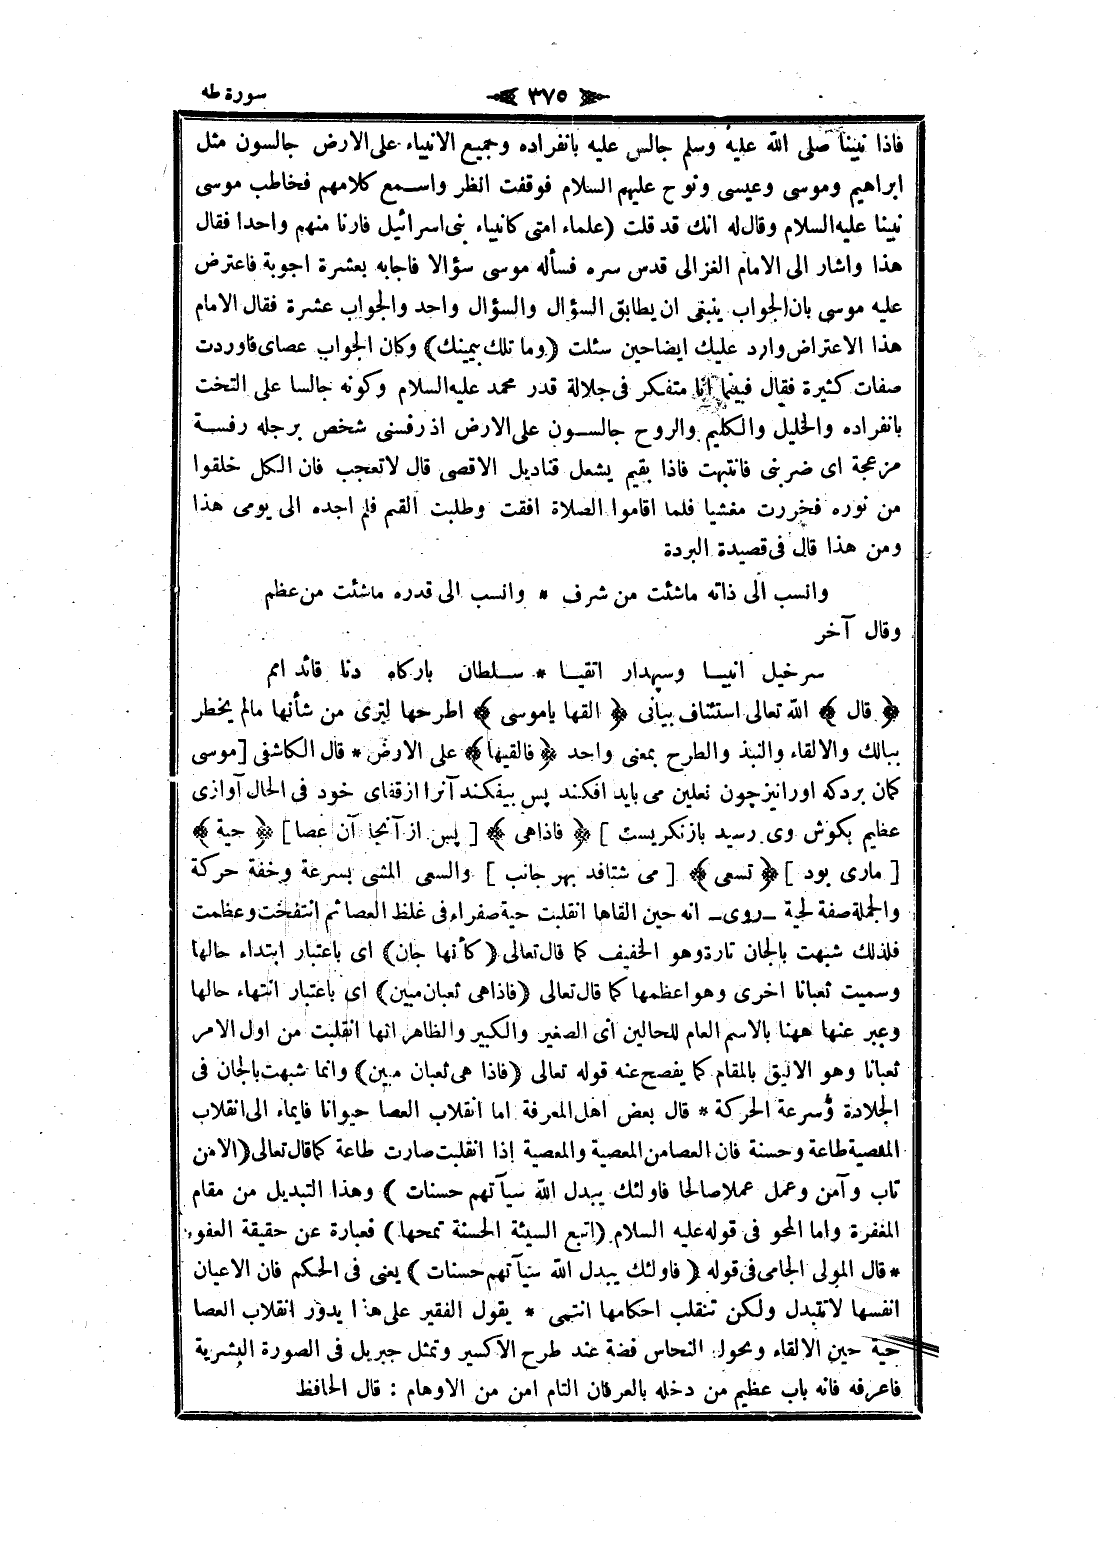 سورة طه ٣٧٥
فاذا نبينا صلى الله عليه وسلم جالس عليه بانفراده وجميع الانبياء على الارض جالسون مثل
ابراهيم وموسى وعيسى ونوح عليهم السلام فوقفت انظر واسمع كلامهم فخاطب موسى
نبينا عليه السلام وقال له انك قد قلت (علماء امتى كانبياء بنى اسرائيل فارنا منهم واحدا فقال
هذا واشار الى الامام الغزالى قدس سره فسأله موسى سؤالا فاجابه بعشرة اجوبة فاعترض
عليه موسى بان الجواب ينبغى ان يطابق السؤال والسؤال واحد والجواب عشرة فقال الامام
هذا الاعتراض وارد عليك ايضا حين سئلت (وما تلك بيمينك) وكان الجواب عصاى فاوردت
صفات كثيرة فقال فبينما انا متفكر فى جلالة قدر محمد عليه السلام وكونه جالسا على التخت
بانفراده والخليل والكليم والروح جالسون على الارض اذ رفسنى شخص برجله رفسة
مزعجة اى ضربنى فانتبهت فاذا بقيم يشعل قناديل الاقصى قال لا تعجب فان الكل خلقوا
من نوره فخررت مغشيا فلما اقاموا الصلاة افقت وطلبت القيم فلم اجده الى يومى هذا
ومن هذا قال فى قصيدة البردة
وانسب الى ذاته ماشئت من شرف * وانسب الى قدره ماشئت من عظم
وقال آخر
سرخيل انبيا وسپهدار اتقيا * سلطان باركاه دنا قائد امم
﴿ قال ﴾ الله تعالى استئناف بيانى ﴿ القها ياموسى ﴾ اطرحها لترى من شأنها مالم يخطر
ببالك والالقاء والنبذ والطرح بمعنى واحد ﴿ فالقيها ﴾ على الارض * قال الكاشفى [موسى
كمان بردكه اورانيزچون نعلين مى بايد افكند پس بيفكند آنرا ازقفاى خود فى الحال آوازى
عظيم بكوش وى رسيد بازنكريست ] ﴿ فاذاهى ﴾ [ پس از آنجا آن عصا ] ﴿ حية ﴾
[ مارى بود ] ﴿ تسعى ﴾ [ مى شتافد بهر جانب ] والسعى المشى بسرعة وخفة حركة
والجملة صفة لحية ـ روى ـ انه حين القاها انقلبت حية صفراء فى غلظ العصا ثم انتفخت وعظمت
فلذلك شبهت بالجان تارة وهو الخفيف كما قال تعالى (كأنها جان) اى باعتبار ابتداء حالها
وسميت ثعبانا اخرى وهو اعظمها كما قال تعالى (فاذاهى ثعبان مبين) اى باعتبار انتهاء حالها
وعبر عنها ههنا بالاسم العام للحالين اى الصغير والكبير والظاهر انها انقلبت من اول الامر
ثعبانا وهو الاليق بالمقام كما يفصح عنه قوله تعالى (فاذا هى ثعبان مبين) وانما شبهت بالجان فى
الجلادة وسرعة الحركة * قال بعض اهل المعرفة اما انقلاب العصا حيوانا فايماء الى انقلاب
المعصية طاعة وحسنة فان العصا من المعصية والمعصية إذا انقلبت صارت طاعة كما قال تعالى (الا من
تاب وآمن وعمل عملا صالحا فاولئك يبدل الله سيآتهم حسنات ) وهذا التبديل من مقام
المغفرة واما المحو فى قوله عليه السلام (اتبع السيئة الحسنة تمحها ) فعبارة عن حقيقة العفو
* قال المولى الجامى فى قوله ( فاولئك يبدل الله سيآتهم حسنات ) يعنى فى الحكم فان الاعيان
انفسها لا تتبدل ولكن تنقلب احكامها انتهى * يقول الفقير على هذا يدور انقلاب العصا
حية حين الالقاء وتحول النحاس فضة عند طرح الاكسير وتمثل جبريل فى الصورة البشرية
فاعرفه فانه باب عظيم من دخله بالعرفان التام امن من الاوهام : قال الحافظ